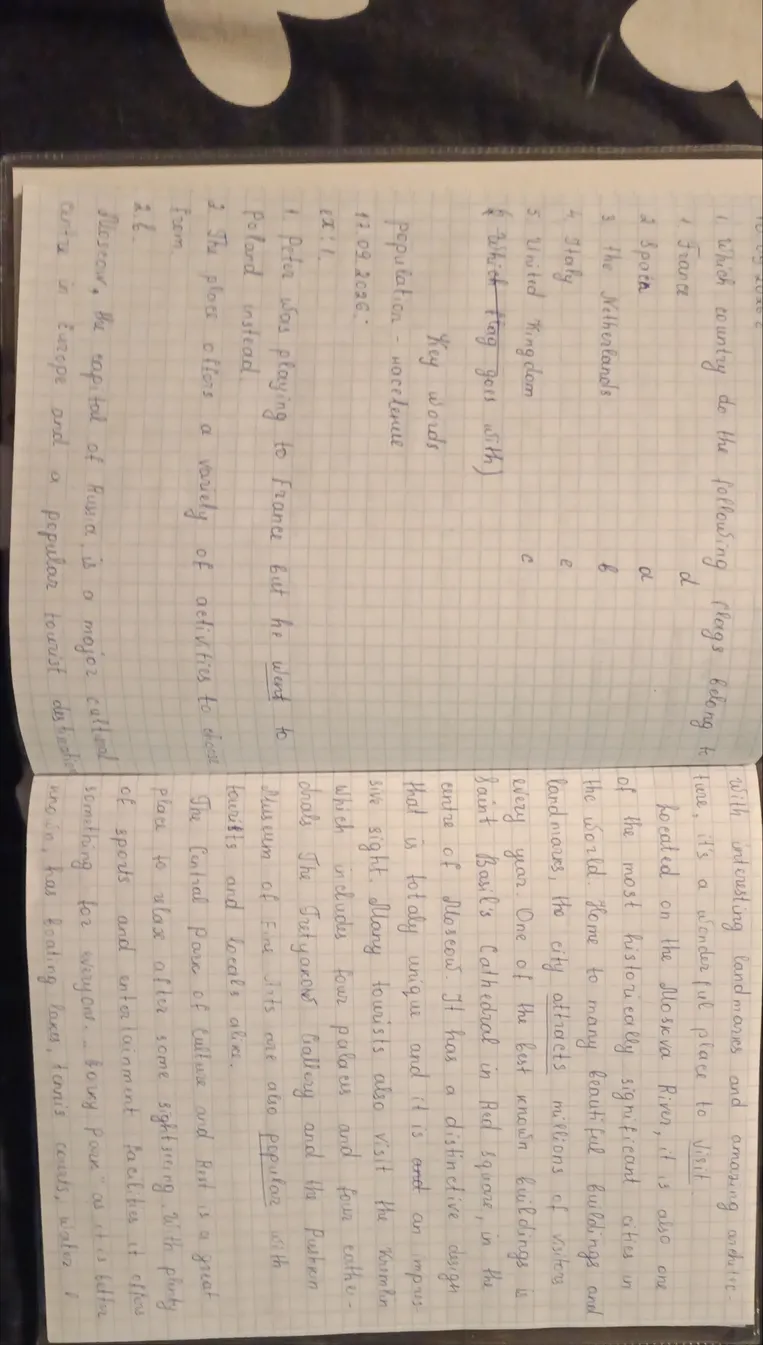 1 Which country do the following flags belong to
1 France d
2 Spain a
3 the Netherlands b
4. Italy e
5 United Kingdom c
Which flag goes with)
Key words
population - население
17 09 2026.
ex: 1.
1. Peter was playing to France but he went to
Poland instead.
2 The place offers a variety of activities to choose
from
2.b.
Moscow, the capital of Russia, is a major cultural
centre in Europe and a popular tourist destination
with interesting landmarks and amazing architec-
ture, it's a wonderful place to visit
Located on the Moskva River, it is also one
of the most historically significant cities in
the world. Home to many beautiful buildings and
landmarks, the city attracts millions of visitors
every year One of the best known buildings is
Saint Basil's Cathedral in Red square, in the
centre of Moscow. It has a distinctive design
that is totaly unique and it is and an impres-
sive sight. Many tourists also visit the Kremlin
which includes four palaces and four cathe-
drals The Tretyakow Gallery and the Pushkin
Museum of Fine Arts are also popular with
tourists and locals alike.
The Central Park of Culture and Rest is a great
place to relax after some sightseeing. With plenty
of sports and entertainment facilities it offers
something for everyone. „Gorky Park" as it is better
known, has boating lakes, tennis courts, water